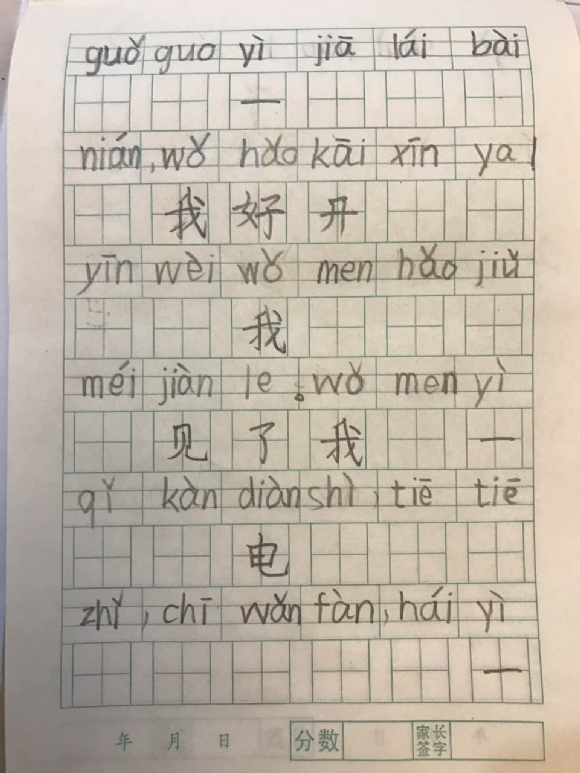 guǒ guo yì jiā lái bài
一
nián, wǒ hǎo kāi xīn ya!
我 好 开
yīn wèi wǒ men hǎo jiǔ
我
méi jiàn le。wǒ men yì
见 了 我 一
qǐ kàn diàn shì, tiē tiē
电
zhǐ, chī wǎn fàn, hái yì
一
年 月 日 分数 家长签字